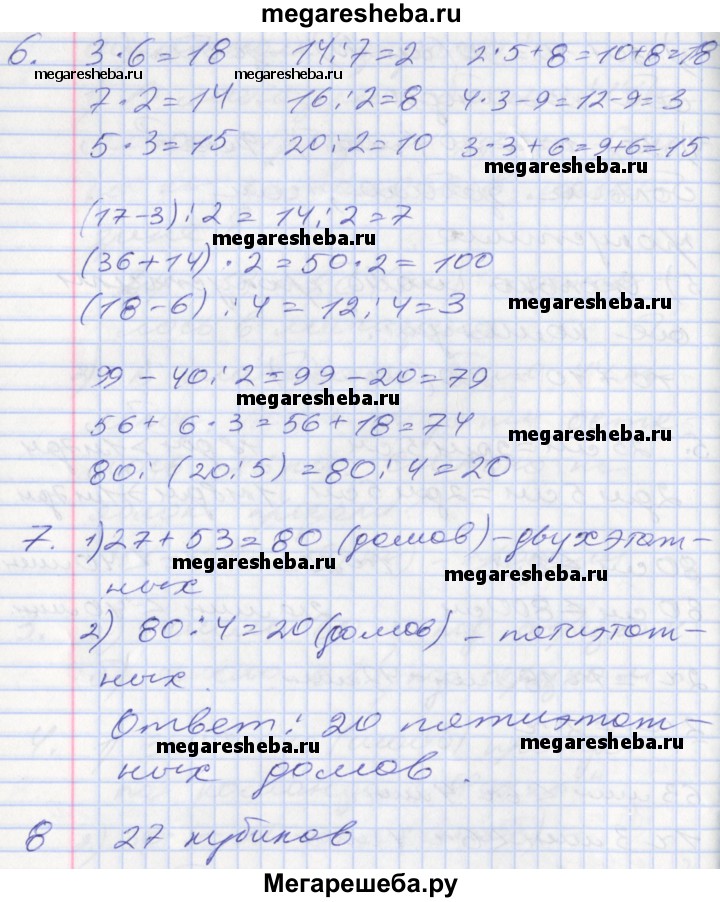 megaresheba.ru
6. 3·6=18 14:7=2 2·5+8=10+8=18
megaresheba.ru megaresheba.ru
7·2=14 16:2=8 4·3-9=12-9=3
5·3=15 20:2=10 3·3+6=9+6=15
megaresheba.ru
(17-3):2=14:2=7
megaresheba.ru
(36+14)·2=50·2=100
(18-6):4=12:4=3
megaresheba.ru
99-40:2=99-20=79
megaresheba.ru
56+6·3=56+18=74
megaresheba.ru
80:(20:5)=80:4=20
7. 1)27+53=80 (домов)-двухэтаж-
megaresheba.ru megaresheba.ru
ных
2) 80:4=20(домов) - пятиэтаж-
ных.
Ответ: 20 пятиэтаж-
megaresheba.ru megaresheba.ru
ных домов.
8 27 кубиков
Мегарешеба.ру